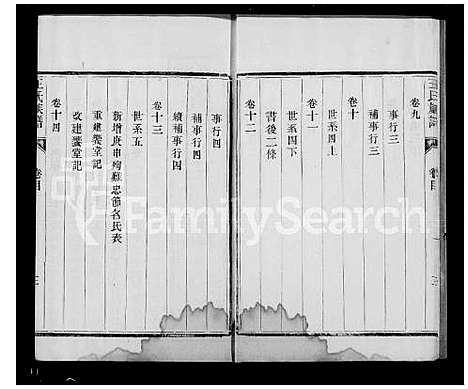 王氏族譜
卷目
卷九
事行三
補事行三
卷十
世系四上
卷十一
世系四下
書後二條
卷十二
事行四
補事行四
續補事行四
卷十三
世系五
新增庚申殉難忠節名氏表
重建饗堂記
改建饗堂記
卷十四
王氏族譜
卷目
三
FamilySearch